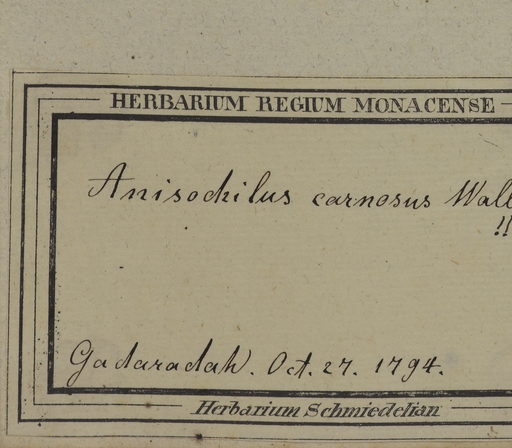 HERBARIUM REGIUM MONACENSE
Anisochilus carnosus Wall
!!
Gadaradah. Oct. 27. 1794.
Herbarium Schmiedelian